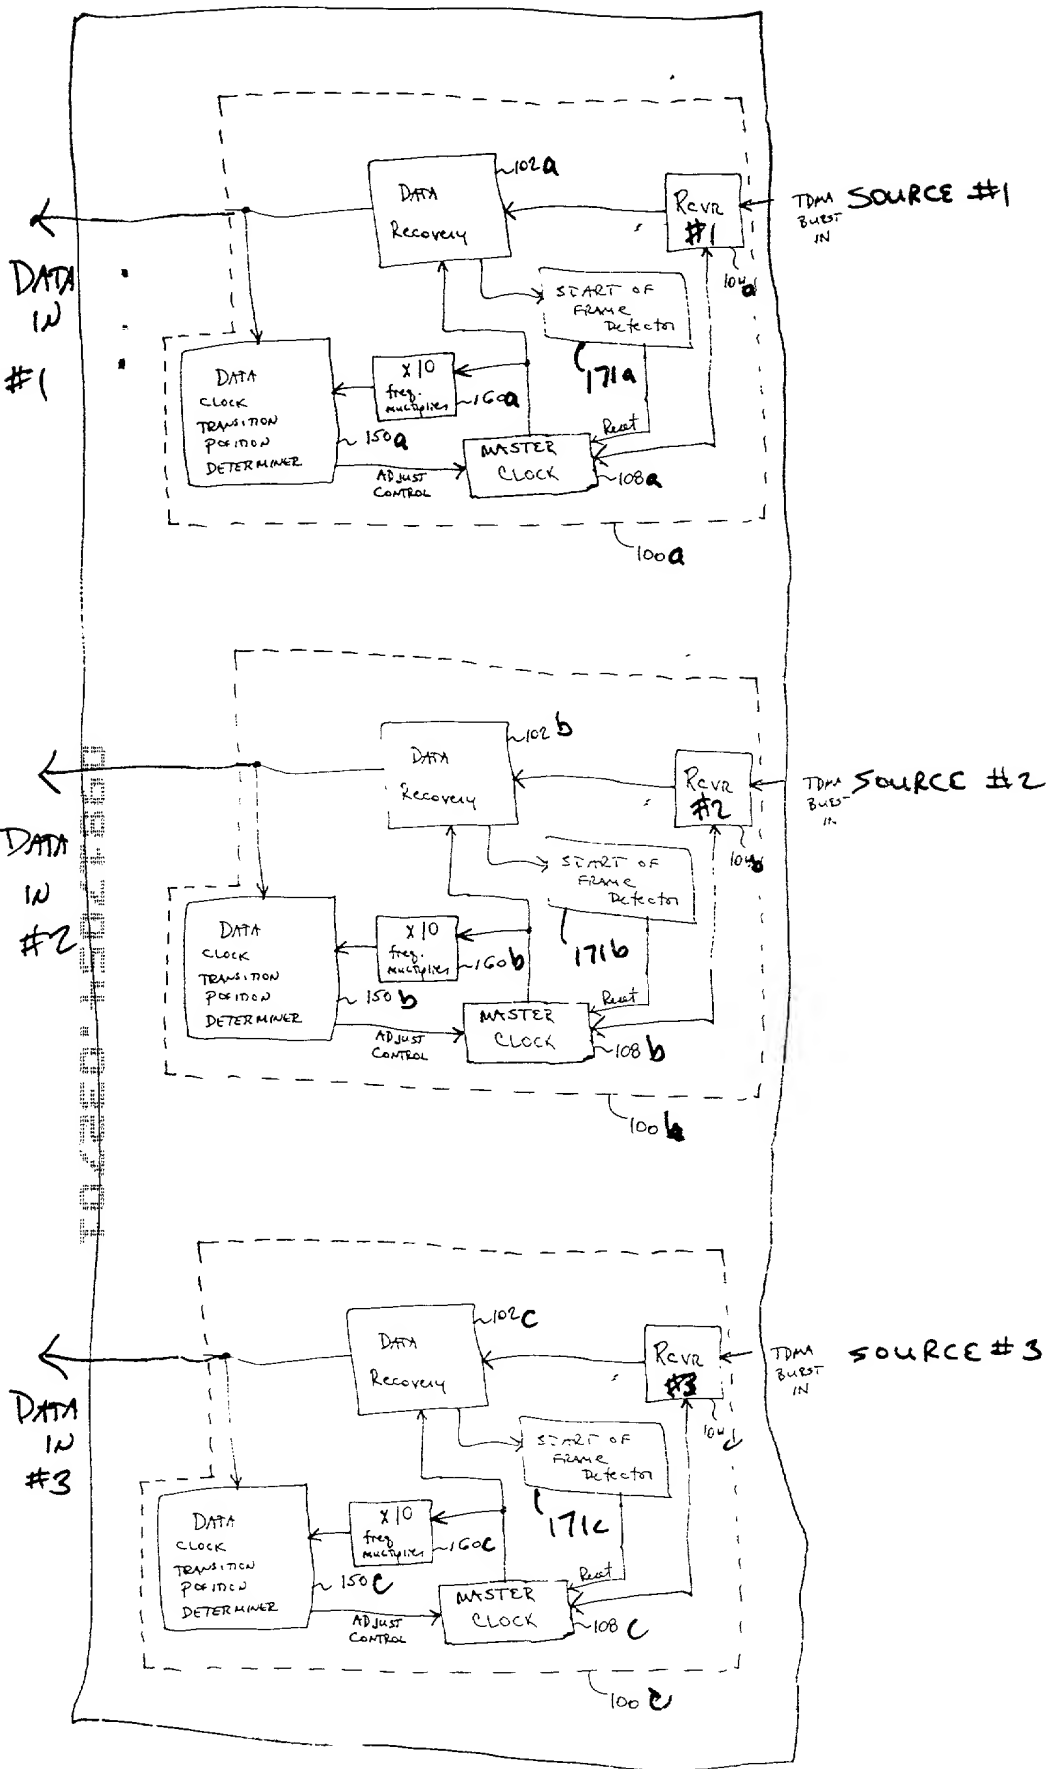 102a
DATA
Recovery
RCVR
#1
TDMA
BURST
IN
SOURCE #1
104a
DATA
IN
#1
START OF
FRAME
Detector
171a
DATA
CLOCK
TRANSITION
POSITION
DETERMINER
150a
X10
freq.
multiplier
160a
Reset
MASTER
CLOCK
108a
ADJUST
CONTROL
100a
102b
DATA
Recovery
RCVR
#2
TDMA
BURST
IN
SOURCE #2
104b
DATA
IN
#2
START OF
FRAME
Detector
171b
DATA
CLOCK
TRANSITION
POSITION
DETERMINER
150b
X10
freq.
multiplier
160b
Reset
MASTER
CLOCK
108b
ADJUST
CONTROL
100b
102c
DATA
Recovery
RCVR
#3
TDMA
BURST
IN
SOURCE #3
104c
DATA
IN
#3
START OF
FRAME
Detector
171c
DATA
CLOCK
TRANSITION
POSITION
DETERMINER
150c
X10
freq.
multiplier
160c
Reset
MASTER
CLOCK
108c
ADJUST
CONTROL
100c